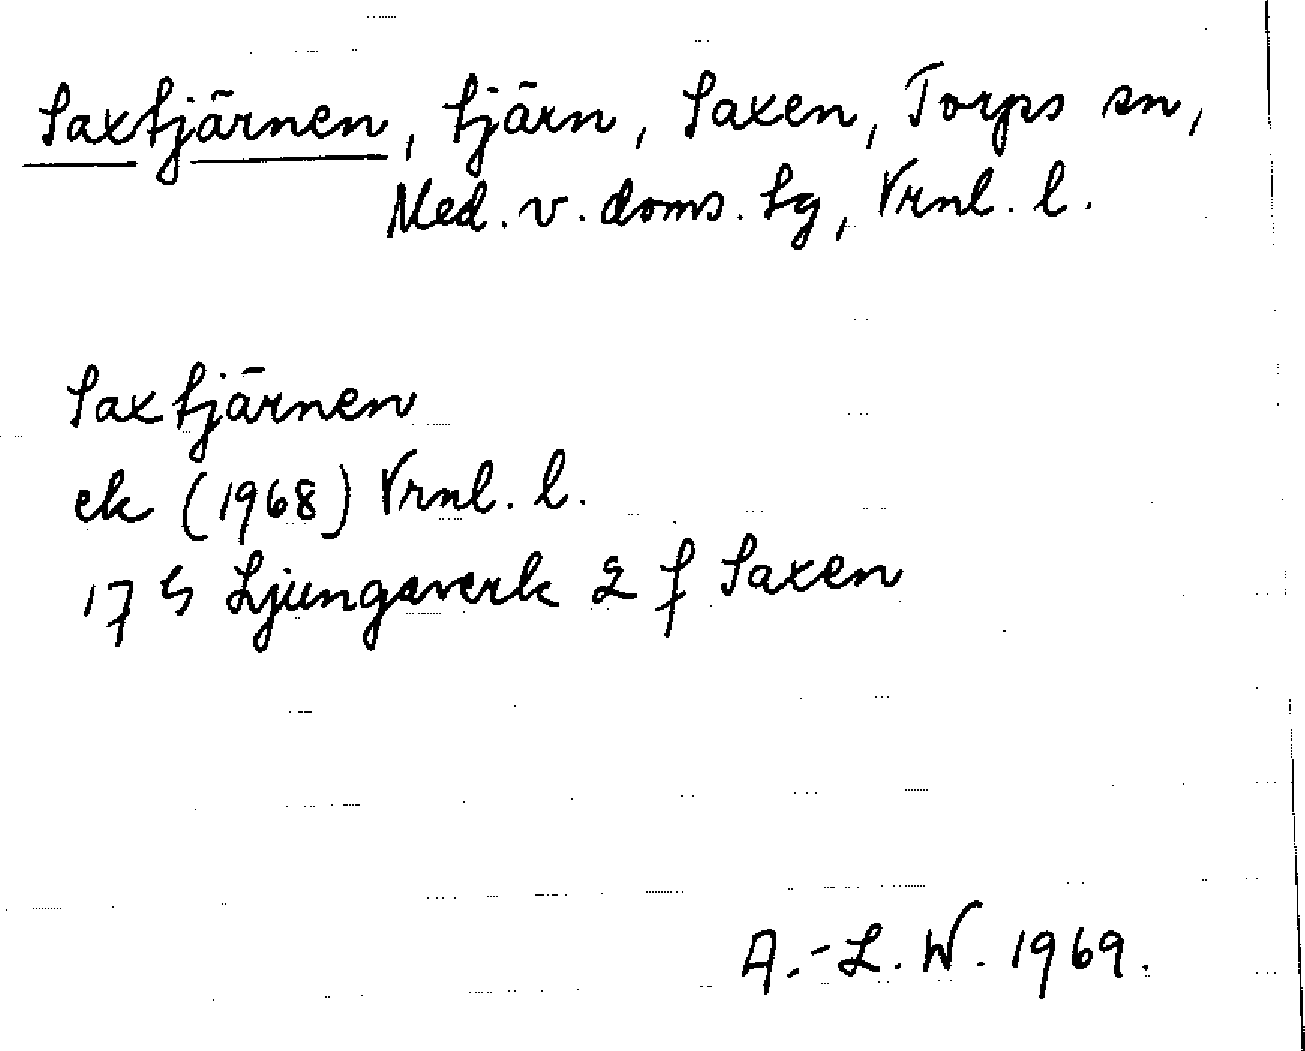 Saxtjärnen, tjärn, Saxen, Torps sn,
Med. v. doms. tg, Vrnl. l.
Saxtjärnen
ek (1968) Vrnl. l.
17 G Ljungaverk 2 f Saxen
A.-L. W. 1969.